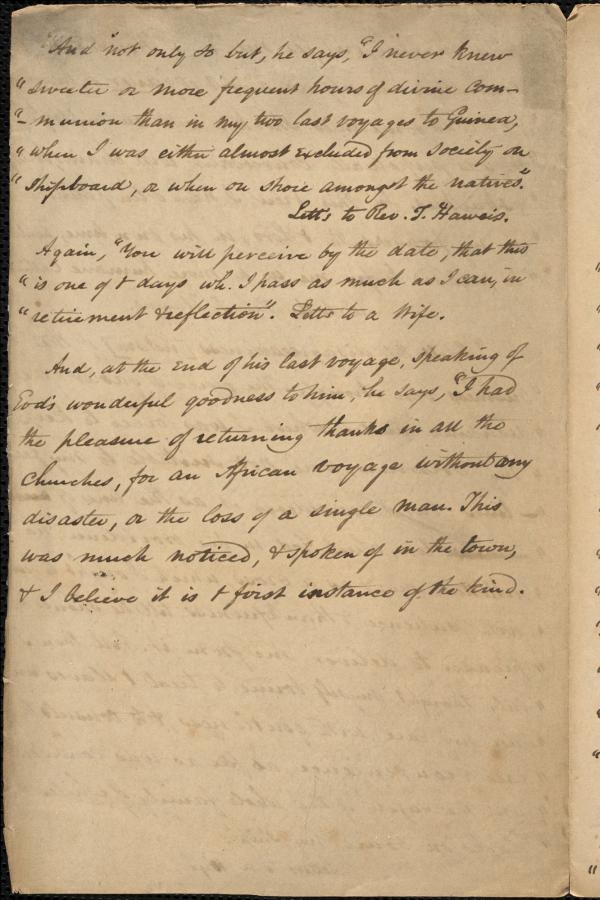 "And not only so but, he says, "I never knew
" sweeter or more frequent hours of divine com-
"- munion than in my two last voyages to Guinea,
" when I was either almost excluded from society on
" shipboard, or when on shore amongst the natives".
Letts to Rev. T. Haweis.
Again, "You will perceive by the date, that this
" is one of t days wh. I pass as much as I can, in
" retirement & reflection". Letts to a Wife.
And, at the end of his last voyage, speaking of
God's wonderful goodness to him, he says, "I had
the pleasure of returning thanks in all the
churches, for an African voyage without any
disaster, or the loss of a single man. This
was much noticed, & spoken of in the town,
& I believe it is t first instance of the kind.